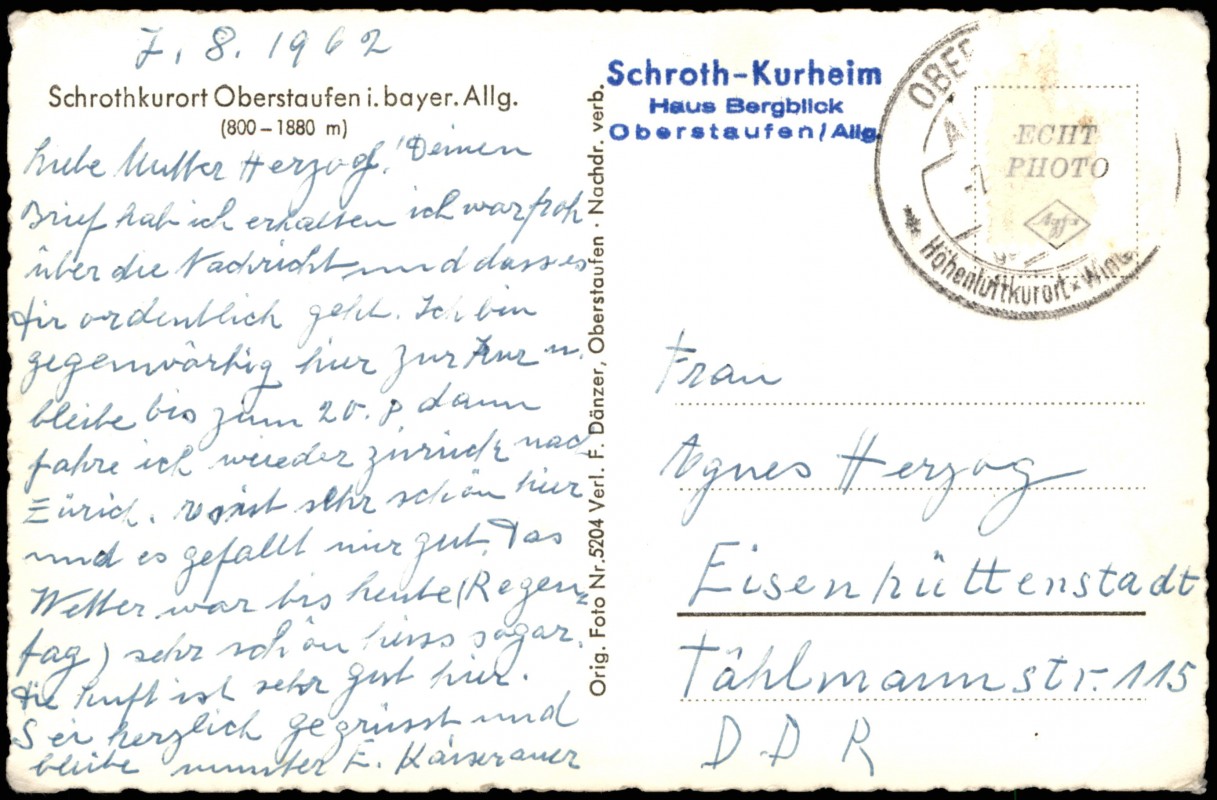 7. 8. 1962
Schrothkurort Oberstaufen i. bayer. Allg.
(800 – 1880 m)
Liebe Mutter Herzog! Deinen
Brief hab ich erhalten ich war froh
über die Nachricht und dass es
dir ordentlich geht. Ich bin
gegenwärtig hier zur Kur u.
bleibe bis zum 20. 8 dann
fahre ich wieder zurück nach
Zürich. sehr schön hier
und es gefällt mir gut. Das
Wetter war bis heute (Regen-
tag) sehr schön heiss sogar.
die Luft ist sehr gut hier.
Sei herzlich gegrüsst und
bleibe munter E.
Orig. Foto Nr. 5204 Verl. F. Dänzer, Oberstaufen · Nachdr. verb.
Schroth-Kurheim
Haus Bergblick
Oberstaufen/Allg.
OBER
Höhenluftkurort
ECHT
PHOTO
Agfa
Frau
Agnes Herzog
Eisenhüttenstadt
Tählmannstr. 115
DDR